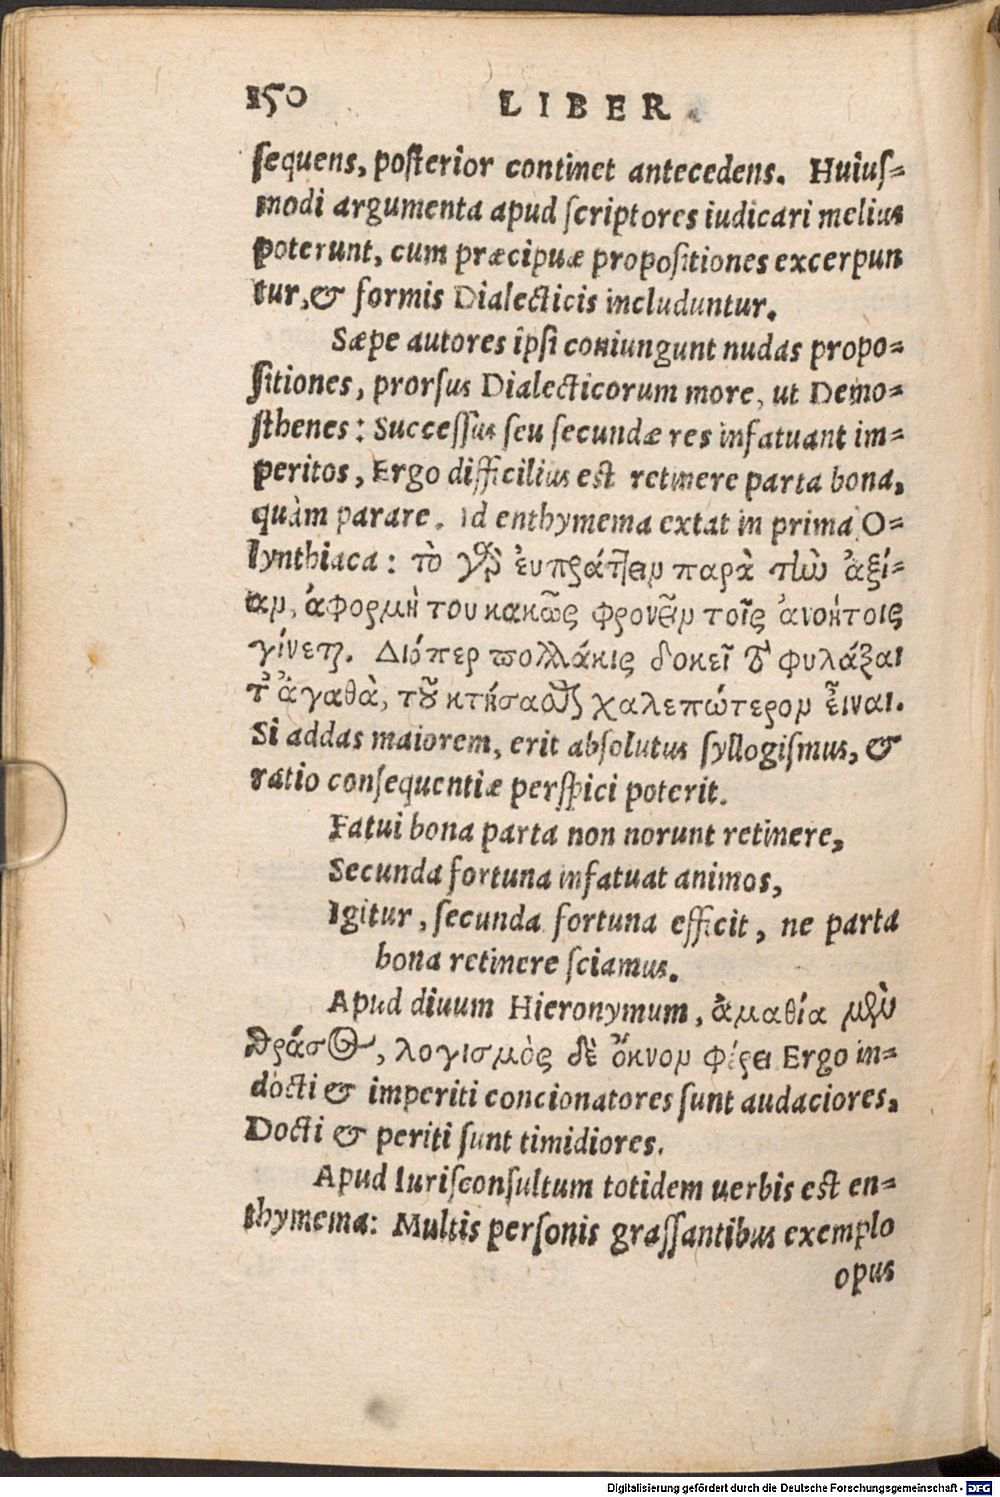 150 LIBER
sequens, posterior continet antecedens. Huius-
modi argumenta apud scriptores iudicari melius
poterunt, cum præcipuæ propositiones excerpun
tur, & formis Dialecticis includuntur.
Sæpe autores ipsi coniungunt nudas propo-
sitiones, prorsus Dialecticorum more, ut Demo-
sthenes: Successus seu secundæ res infatuant im-
peritos, Ergo difficilius est retinere parta bona,
quàm parare. Id enthymema extat in prima O-
lynthiaca: τὸ γὰρ ἐυπράττειν παρὰ τὴν ἀξί-
αν, ἀφορμὴ του κακῶς φρονεῖν τοῖς ἀνοήτοις
γίνεται. Διόπερ πολλάκις δοκεῖ τὸ φυλάξαι
τἀγαθὰ, τοῦ κτήσασθαι χαλεπώτερον εἶναι.
Si addas maiorem, erit absolutus syllogismus, &
ratio consequentiæ perspici poterit.
Fatui bona parta non norunt retinere,
Secunda fortuna infatuat animos,
Igitur, secunda fortuna efficit, ne parta
bona retinere sciamus.
Apud diuum Hieronymum, ἀμαθία μὲν
θράσος, λογισμὸς δὲ ὄκνον φέρει Ergo in-
docti & imperiti concionatores sunt audaciores.
Docti & periti sunt timidiores.
Apud Iurisconsultum totidem uerbis est en-
thymema: Multis personis grassantibus exemplo
opus
Digitalisierung gefördert durch die Deutsche Forschungsgemeinschaft - DFG